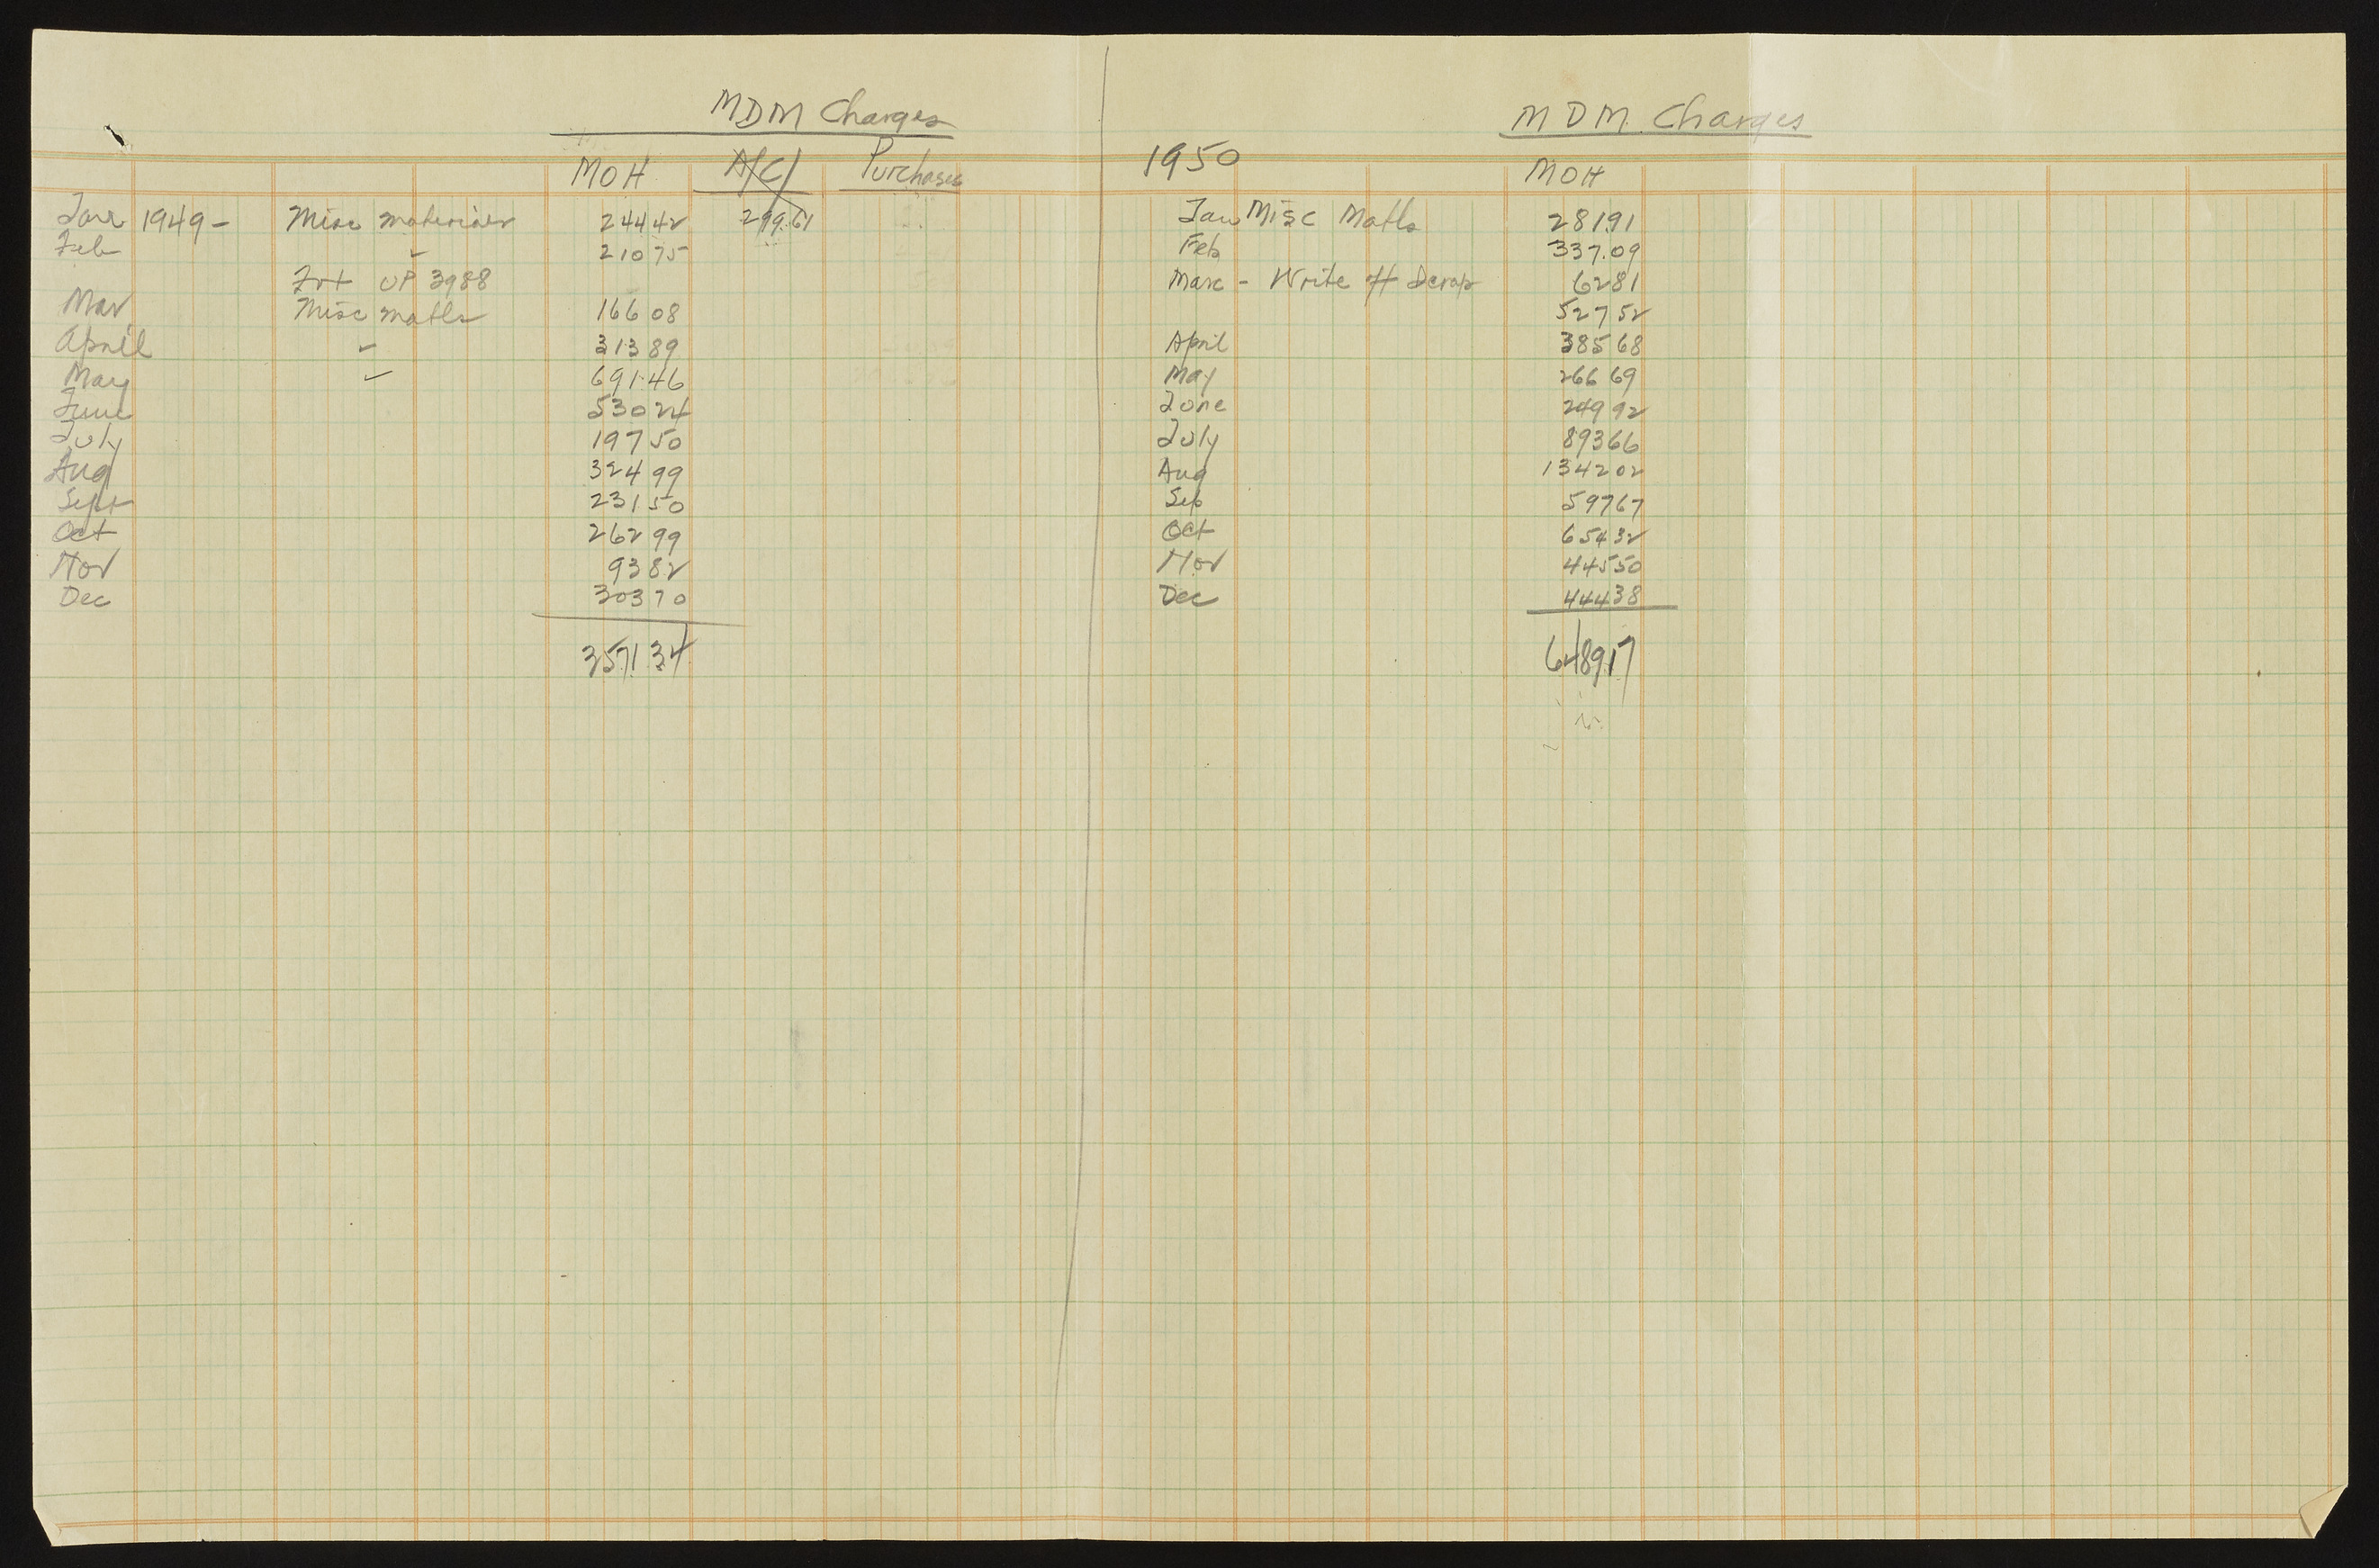 MDM Charges
MOH A/C/ Purchases
Jan 1949 - Misc materials 244 42 299.61
Feb " 210 75
Frt UP 3988
Mar Misc matls 166 08
April " 313 89
May " 691 46
June 530 24
July 197 50
Aug 324 99
Sept 231 50
Oct 262 99
Nov 93 82
Dec 303 70
3571 34
MDM Charges
1950 MOH
Jan Misc Matls 281 91
Feb 337.09
Marc - Write off Scrap 62 81
527 52
April 385 68
May 266 69
June 249 92
July 893 66
Aug 1342 02
Sep 597 67
Oct 654 32
Nov 445 50
Dec 444 38
6489 17